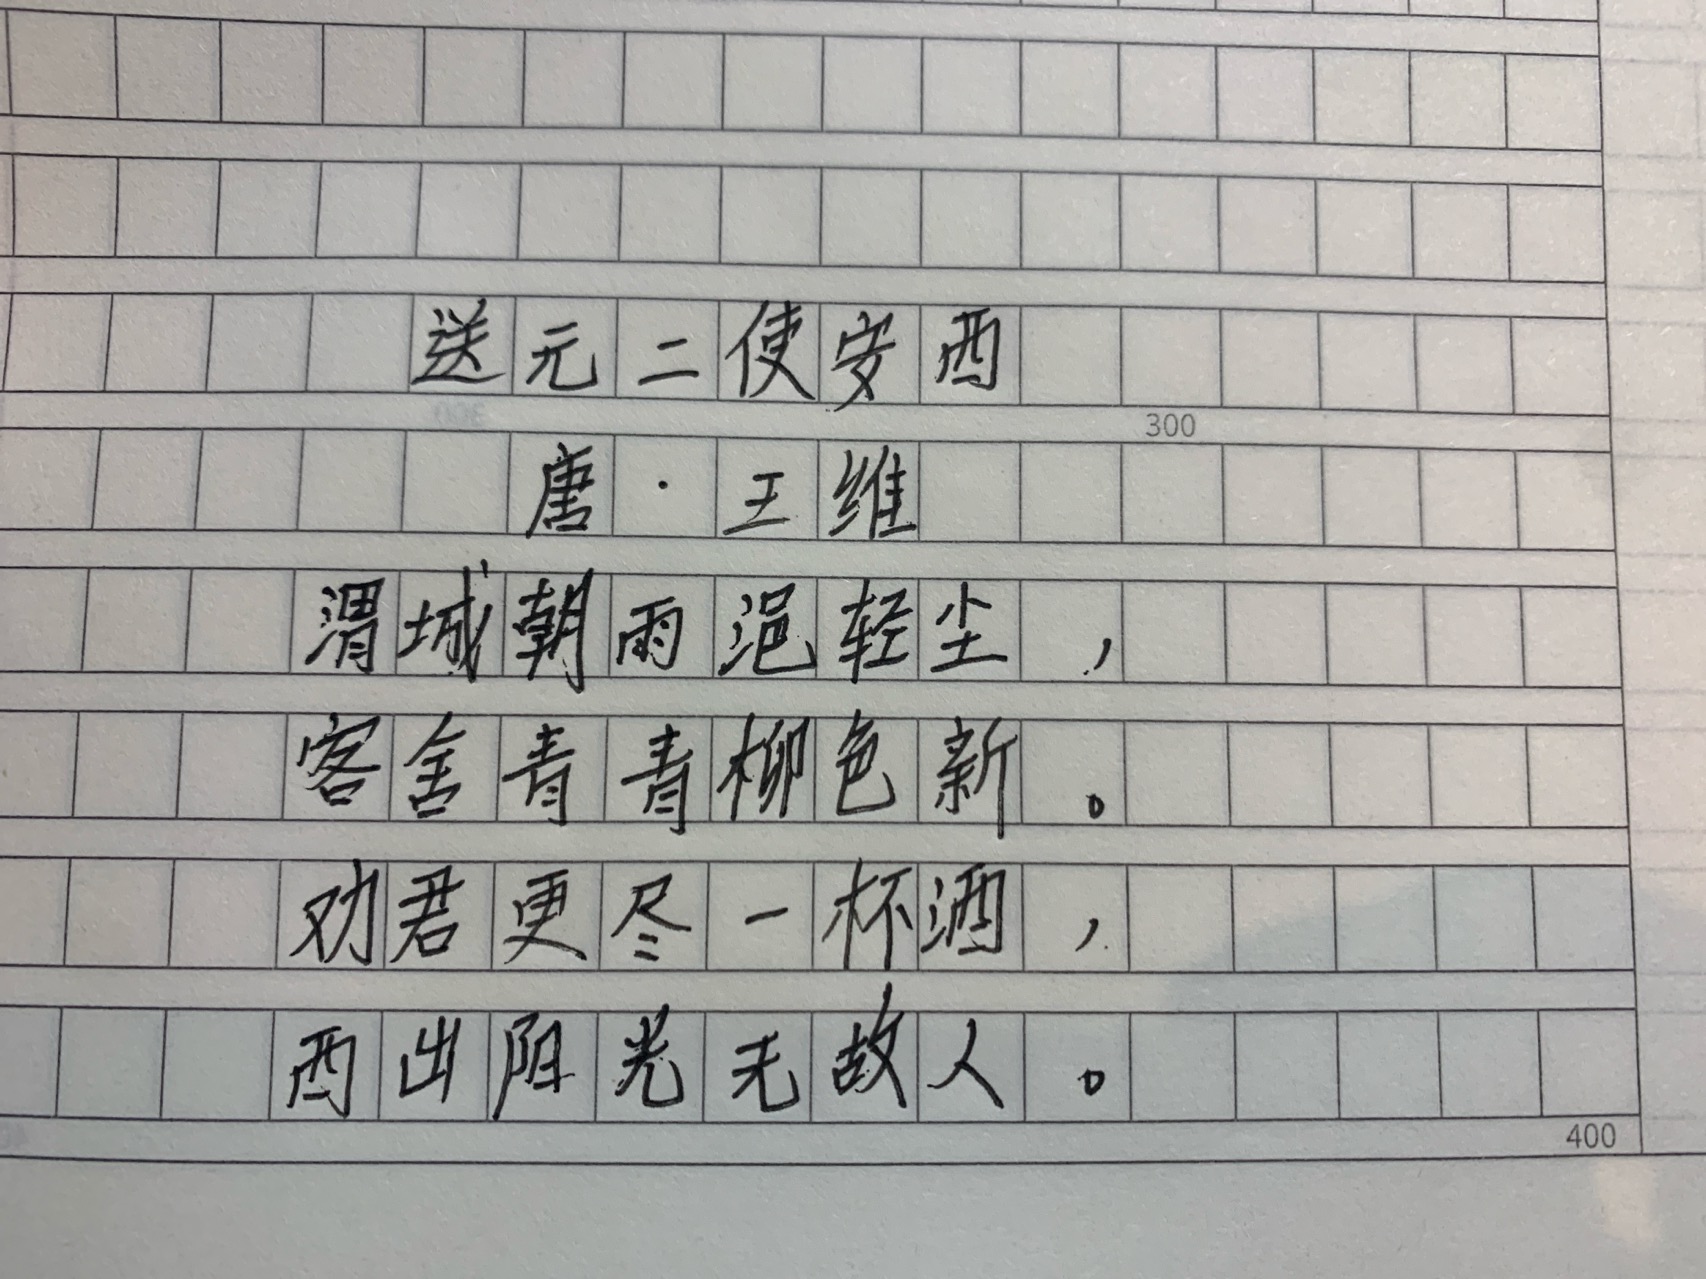 送元二使安西
300
唐·王维
渭城朝雨浥轻尘，
客舍青青柳色新。
劝君更尽一杯酒，
西出阳光无故人。
400